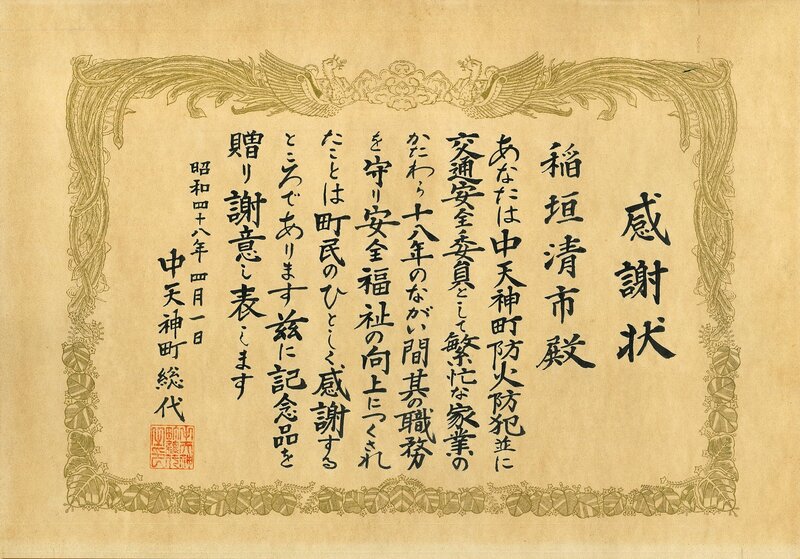 感謝状
稲垣清市殿
あなたは中天神町防火防犯並に
交通安全委員として繁忙な家業の
かたわら十八年のながい間其の職務
を守り安全福祉の向上につくされ
たことは町民のひとしく感謝する
ところであります茲に記念品を
贈り謝意を表します
昭和四十八年四月一日
中天神町総代